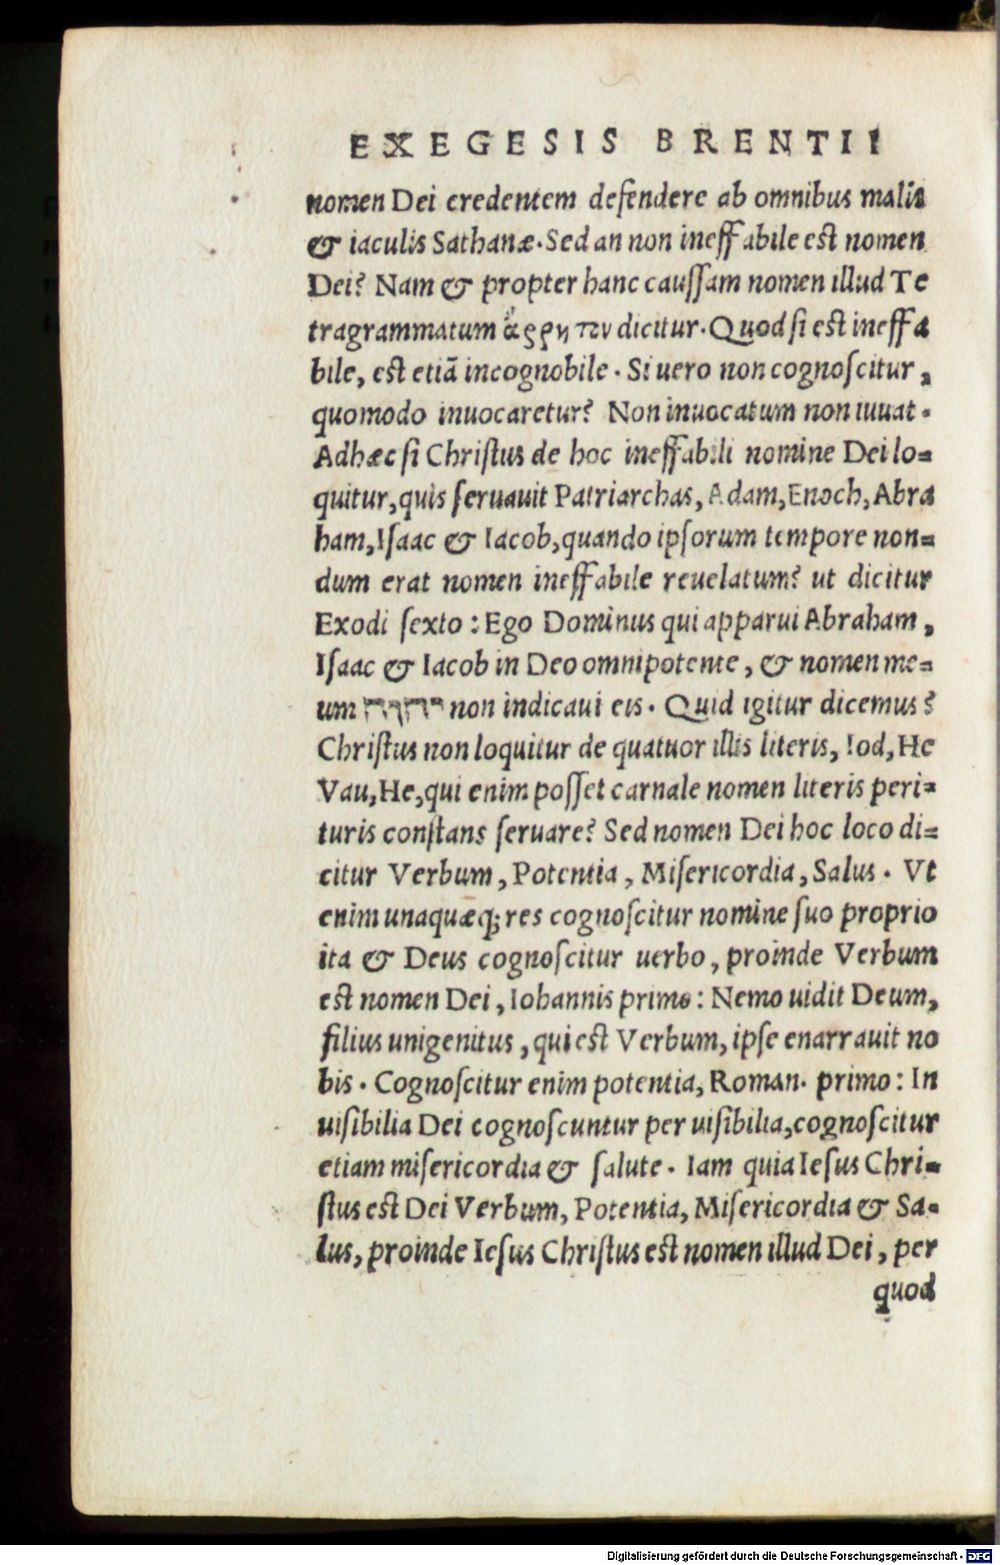 EXEGESIS BRENTII
nomen Dei credentem defendere ab omnibus malis
& iaculis Sathanæ. Sed an non ineffabile est nomen
Dei? Nam & propter hanc caussam nomen illud Te
tragrammatum ἄῤῥητον dicitur. Quod si est ineffa
bile, est etiã incognobile. Si uero non cognoscitur,
quomodo inuocaretur? Non inuocatum non iuuat.
Adhæc si Christus de hoc ineffabili nomine Dei lo-
quitur, quis seruauit Patriarchas, Adam, Enoch, Abra
ham, Isaac & Iacob, quando ipsorum tempore non-
dum erat nomen ineffabile reuelatum? ut dicitur
Exodi sexto: Ego Dominus qui apparui Abraham,
Isaac & Iacob in Deo omnipotente, & nomen me-
um יהוה non indicaui eis. Quid igitur dicemus?
Christus non loquitur de quatuor illis literis, Iod, He
Vau, He, qui enim posset carnale nomen literis peri-
turis constans seruare? Sed nomen Dei hoc loco di-
citur Verbum, Potentia, Misericordia, Salus. Vt
enim unaquæq; res cognoscitur nomine suo proprio
ita & Deus cognoscitur uerbo, proinde Verbum
est nomen Dei, Iohannis primo: Nemo uidit Deum,
filius unigenitus, qui est Verbum, ipse enarrauit no
bis. Cognoscitur enim potentia, Roman. primo: In
uisibilia Dei cognoscuntur per uisibilia, cognoscitur
etiam misericordia & salute. Iam quia Iesus Chri-
stus est Dei Verbum, Potentia, Misericordia & Sa-
lus, proinde Iesus Christus est nomen illud Dei, per
quod
Digitalisierung gefördert durch die Deutsche Forschungsgemeinschaft - DFG